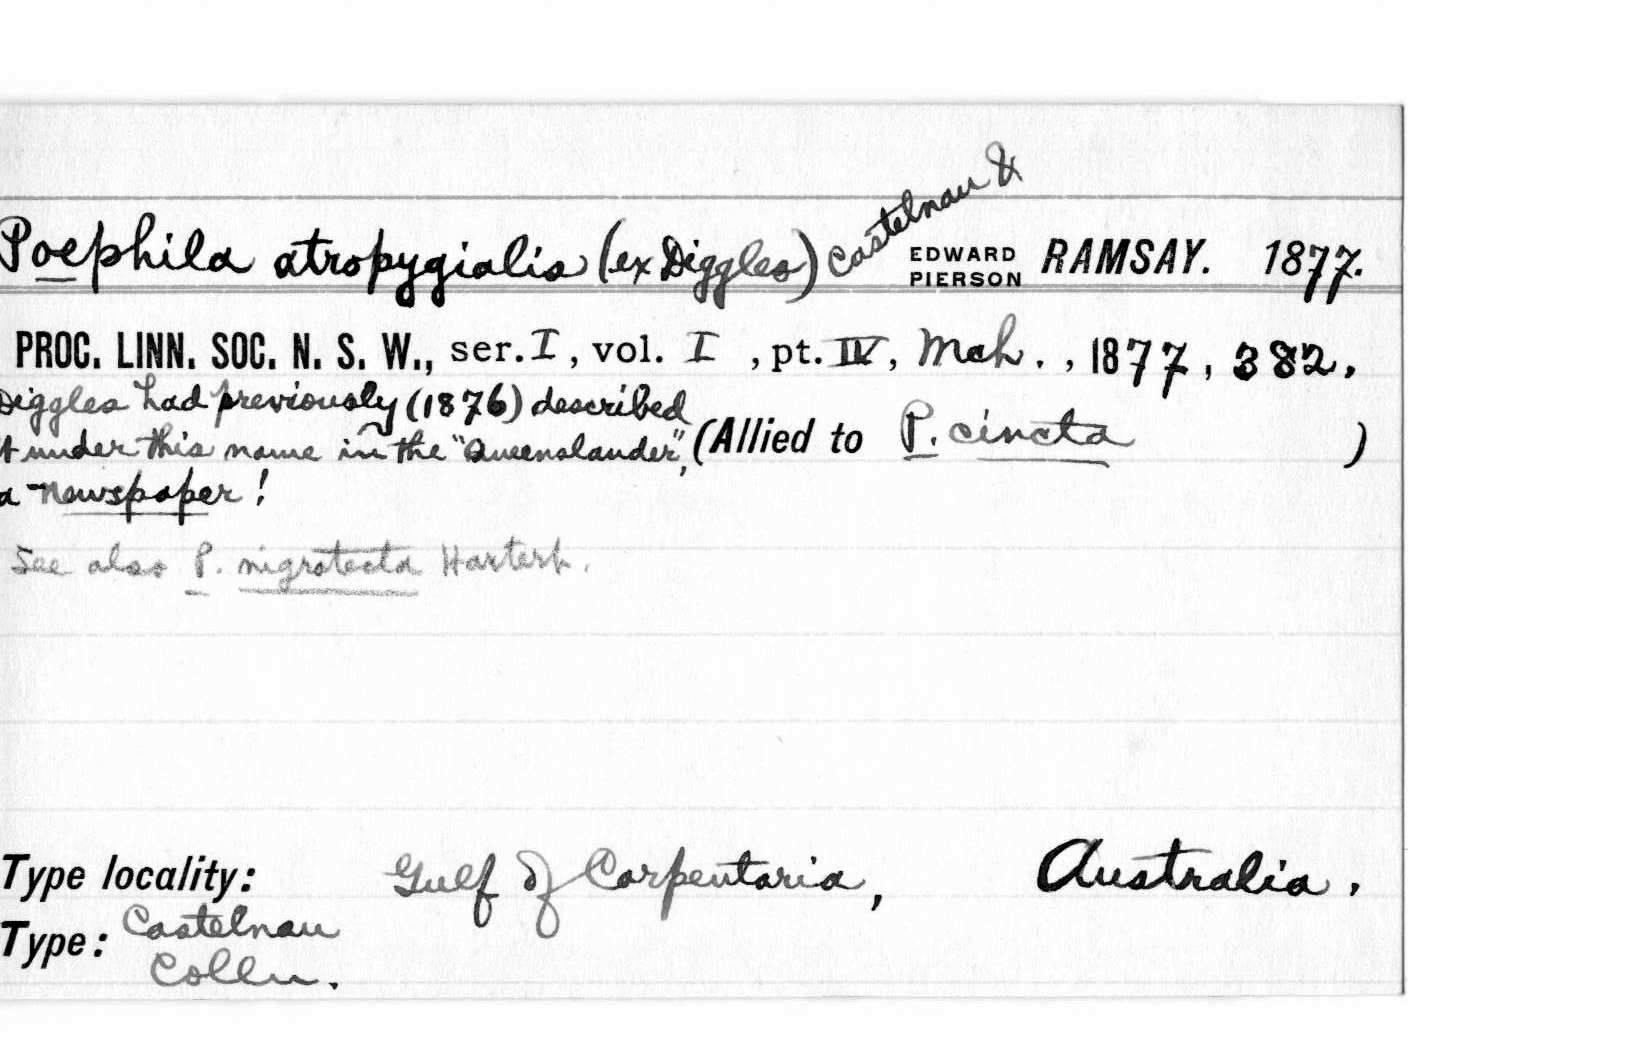 Poephila atropygialis (ex Diggles) Castelnau & EDWARD PIERSON RAMSAY. 1877.
PROC. LINN. SOC. N. S. W., ser. I, vol. I, pt. IV, Mch., 1877, 382.
Diggles had previously (1876) described
it under this name in the "Queenslander", (Allied to P. cincta )
a newspaper!
See also P. nigrotecta Hartert.
Type locality: Gulf of Carpentaria, Australia.
Type: Castelnau
Colln.